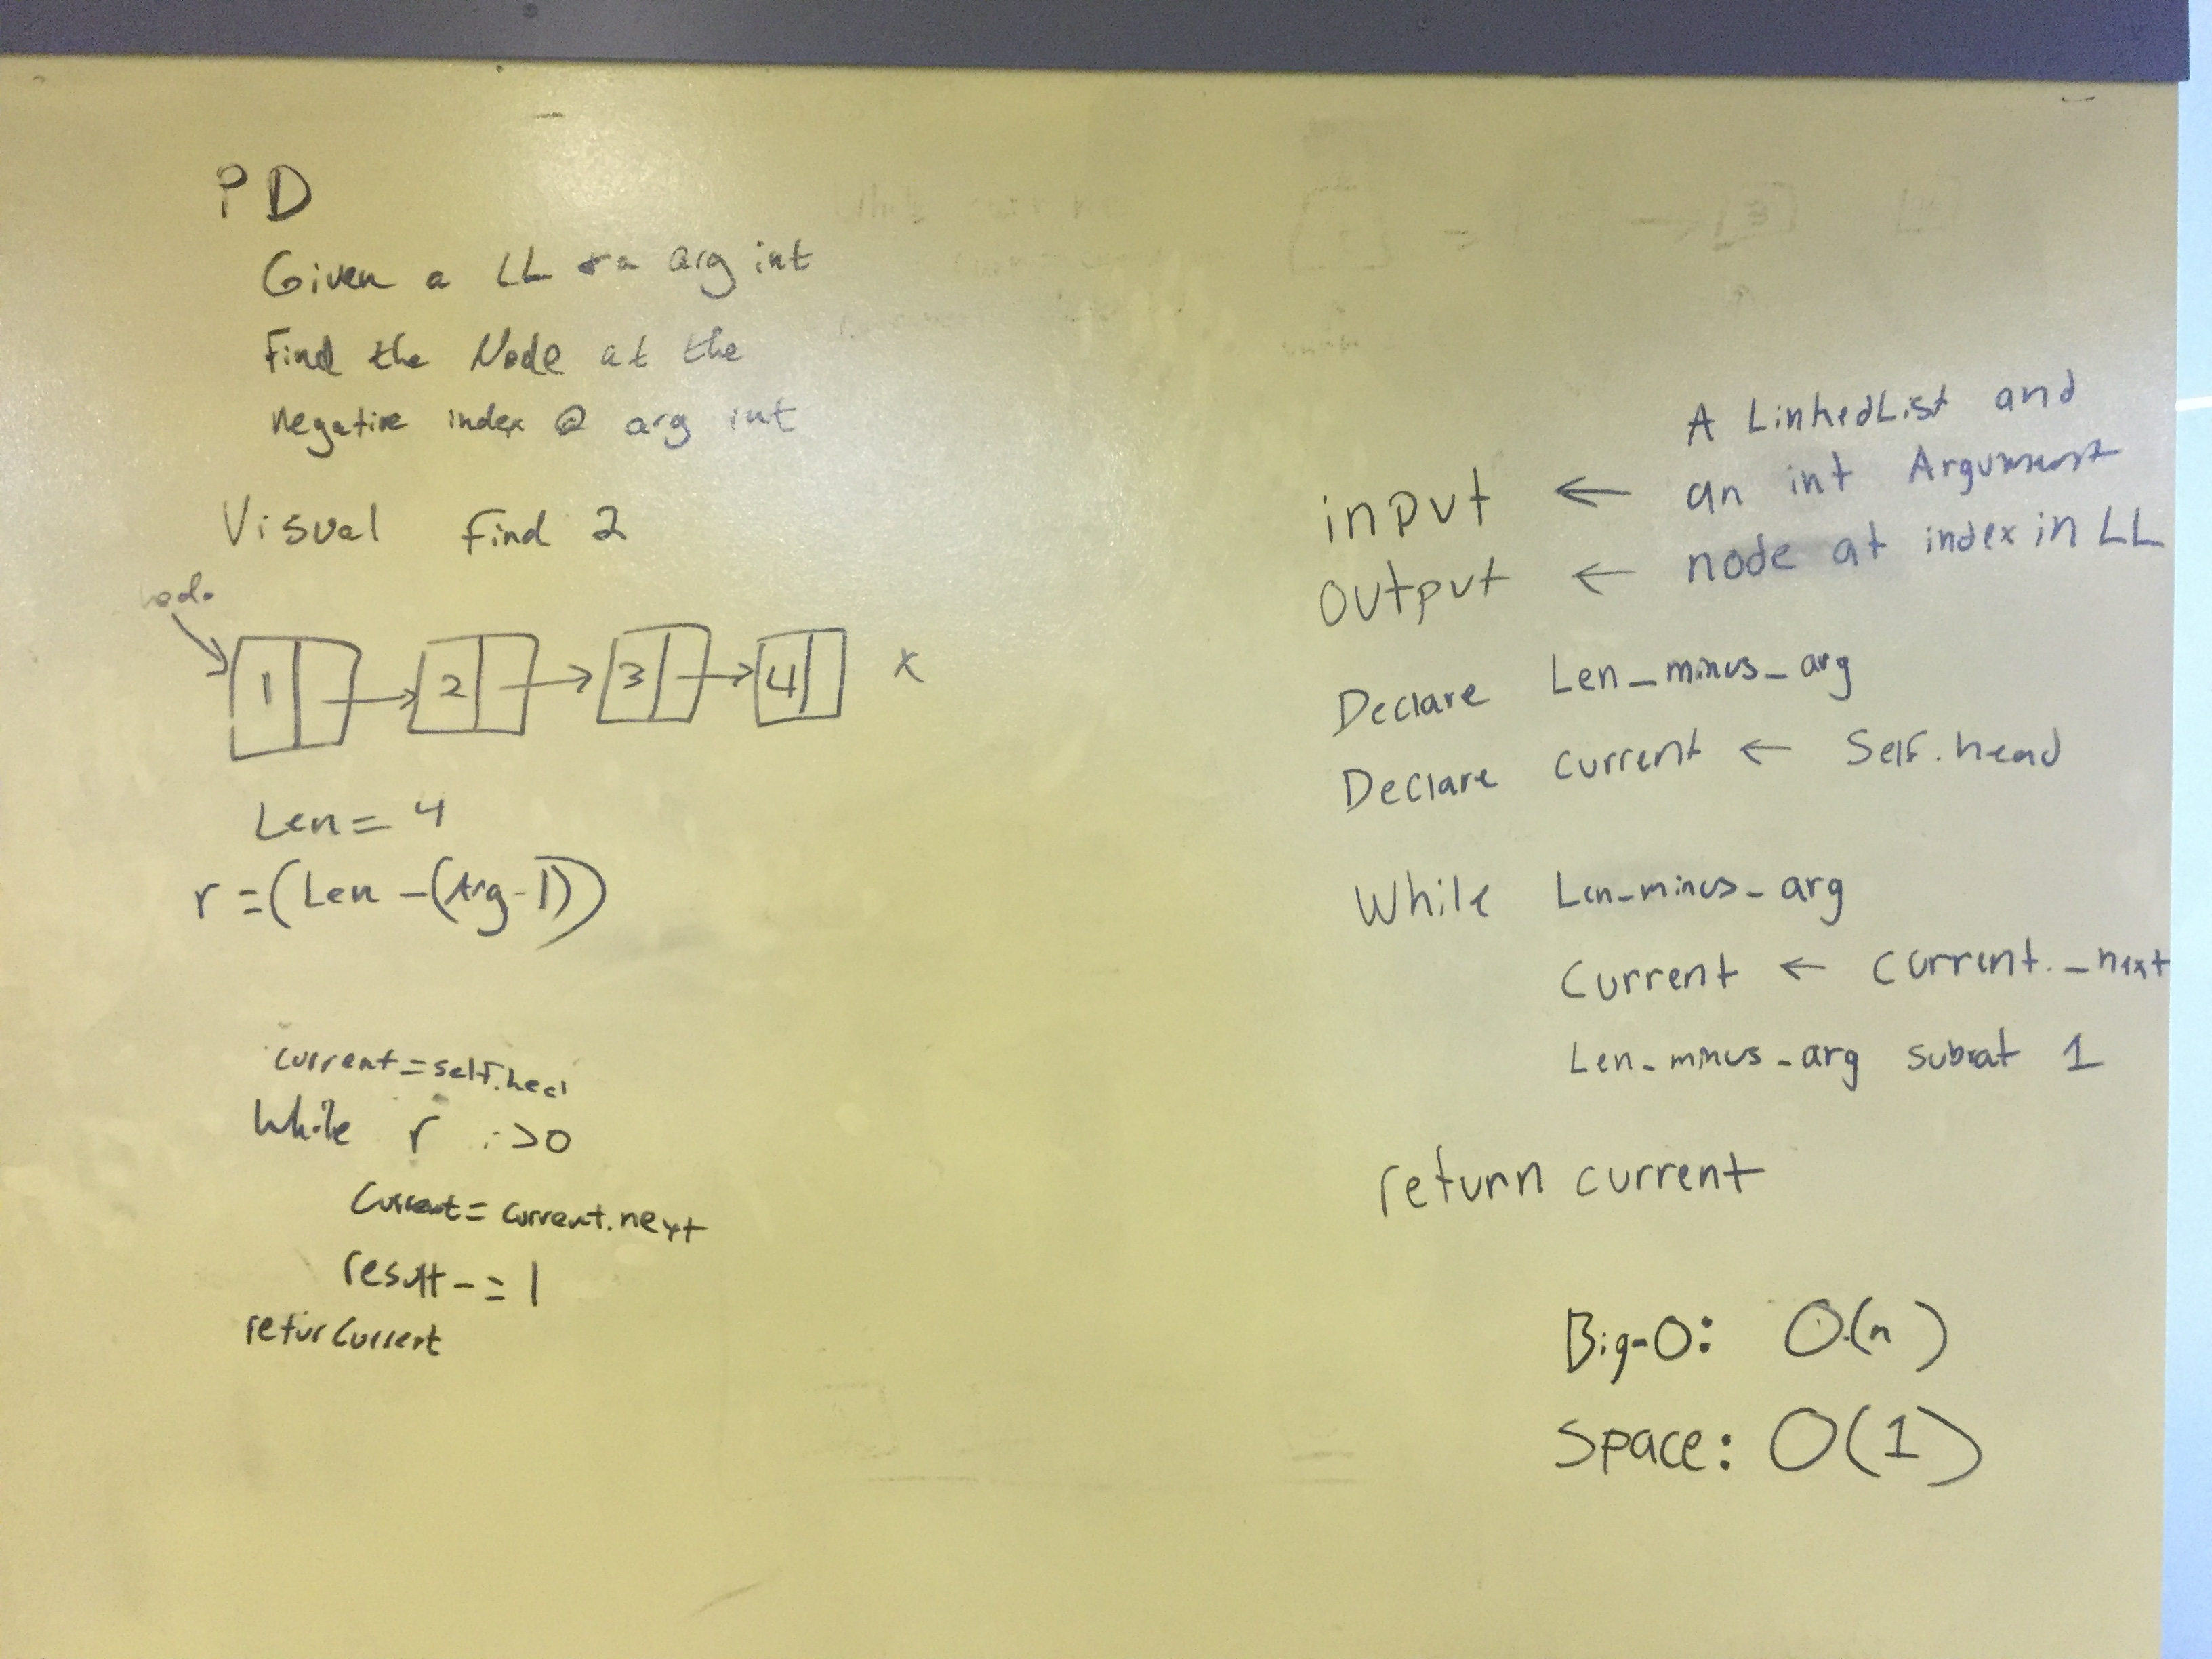 PD
Given a LL + a arg int
Find the Node at the
negative index @ arg int
Visual Find 2
1 2 3 4 x
Len = 4
r = (Len - (Arg - 1))
current = self.head
While r > 0
Current = current.next
result -= 1
retur Current
A LinkedList and
input ← an int Argument
output ← node at index in LL
Declare Len_minus_arg
Declare current ← Self.head
While Len_minus_arg
Current ← current._next
Len_minus_arg subrat 1
return current
Big-O: O(n)
Space: O(1)